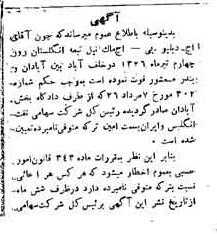 آگهی
بدینوسیله باطلاع عموم میرساند که چون آقای
اچ. دبلیو. بی - اچ‌ماك نیل تبعه انگلستان روز
چهارم تیرماه ۱۳۲۶ درخلف آباد بین آبادان و
بندر معشور فوت نموده است بموجب حکم شماره
۳۰۲ مورخ ۷مرداد ۲۶ که از طرف دادگاه بخش
آبادان صادر گردیده رئیس کل شرکت سهامی نفت
انگلیس وایران بسمت امین ترکه متوفی نامبرده تعیین
شده است
بنابر این نظر بمقررات ماده ۳۴۳ قانون امور
حسبی بعموم اخطار میشود که هر کس هر ادعائی
نسبت بترکه متوفی نامبرده دارد ظرف شش ماه
از تاریخ نشر این آگهی برئیس کل شرکت سهامی